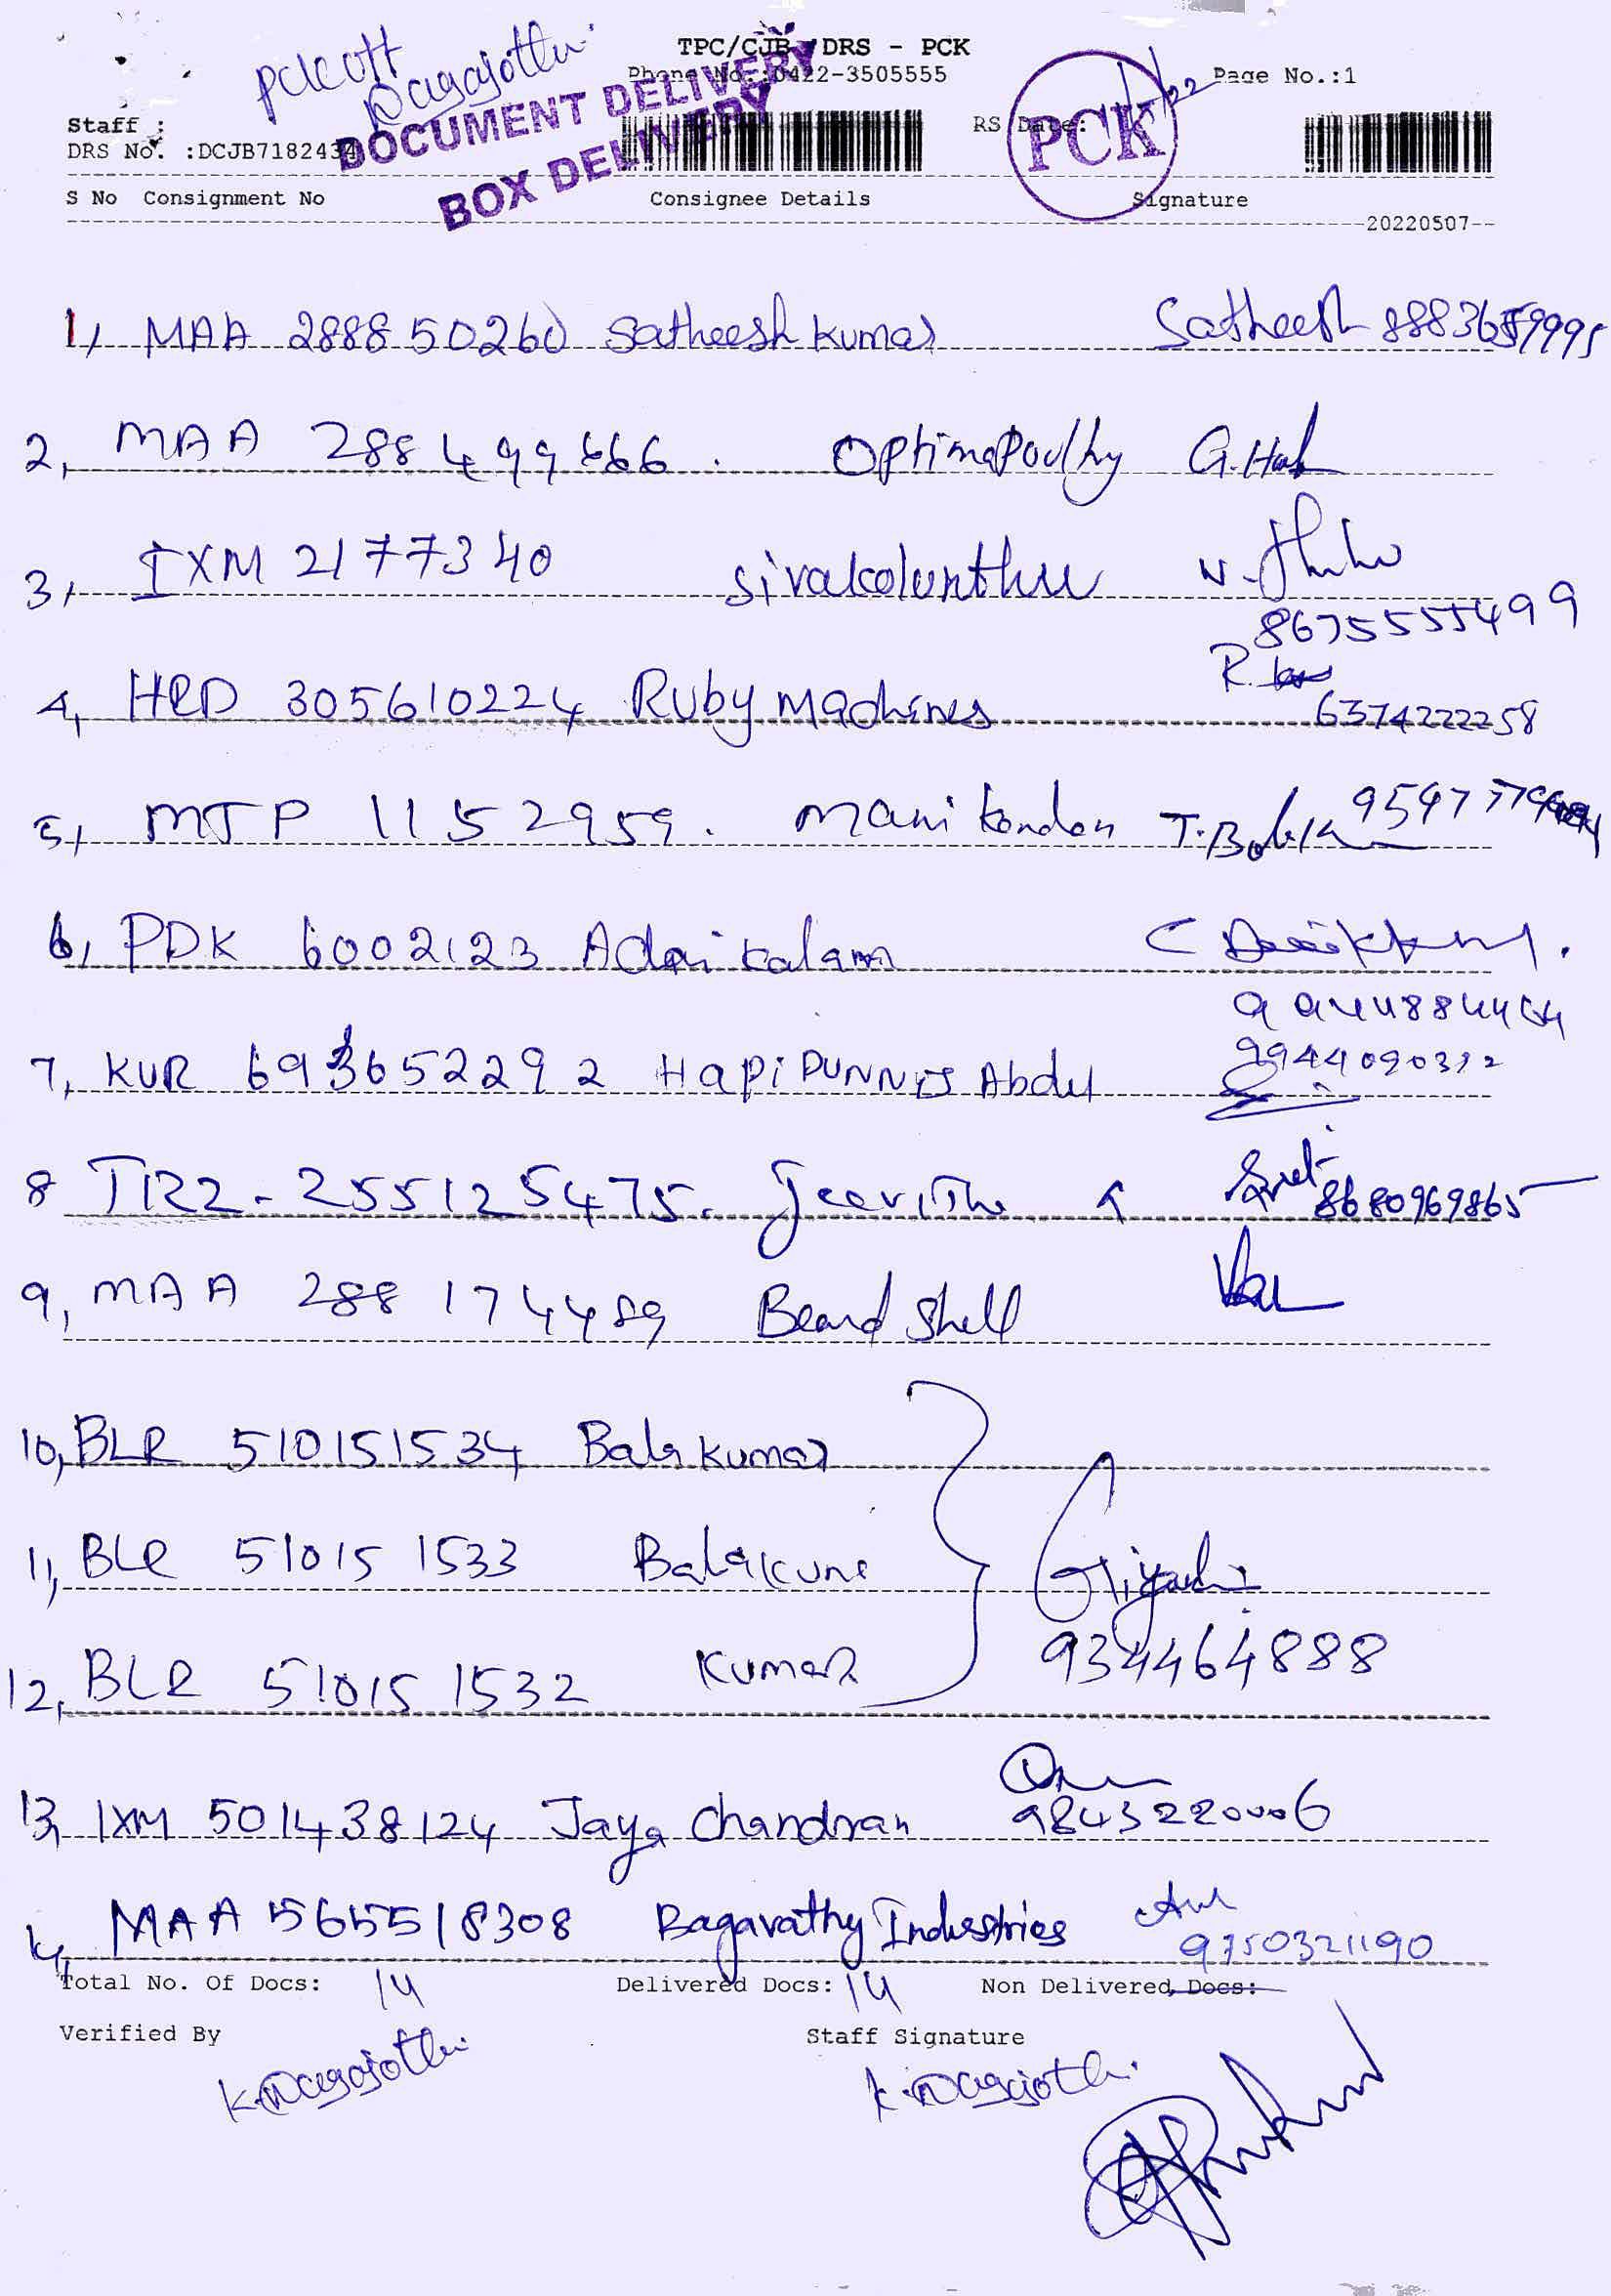 TPC/CJB DRS - PCK
Phone No.:0422-3505555
Page No.:1
PCK off
Nagajothi
DOCUMENT DELIVERY
BOX DELIVERY
Staff :
RS Date:
PCK
DRS No. :DCJB718243
S No Consignment No Consignee Details Signature
20220507
1, MAA 288850260 Satheesh kumar Satheesh
2, MAA 288499666. G.
3, IXM 2177340 Sivakolunthu N.
8675555499
4, HRD 305610224 Ruby Machines R.
6374222258
5, MTP 1152959. Manikandan T.
6, PDK 6002123 Adaikalam
7, KUR Abdul
9944090312
8 TRZ-255125475. Jeevitha
8680969865
9, MAA 288174489 Beardshell
10, BLR 510151534 Balakumar
11, BLR 510151533
12, BLR 510151532 Kumar
934464888
13, IXM 501438124 Jaya chandran
14, MAA 565518308 Bagavathy Industries
9750321190
Total No. Of Docs: 14 Delivered Docs: 14 Non Delivered Docs:
Verified By Staff Signature
K. Nagajothi K. Nagajothi